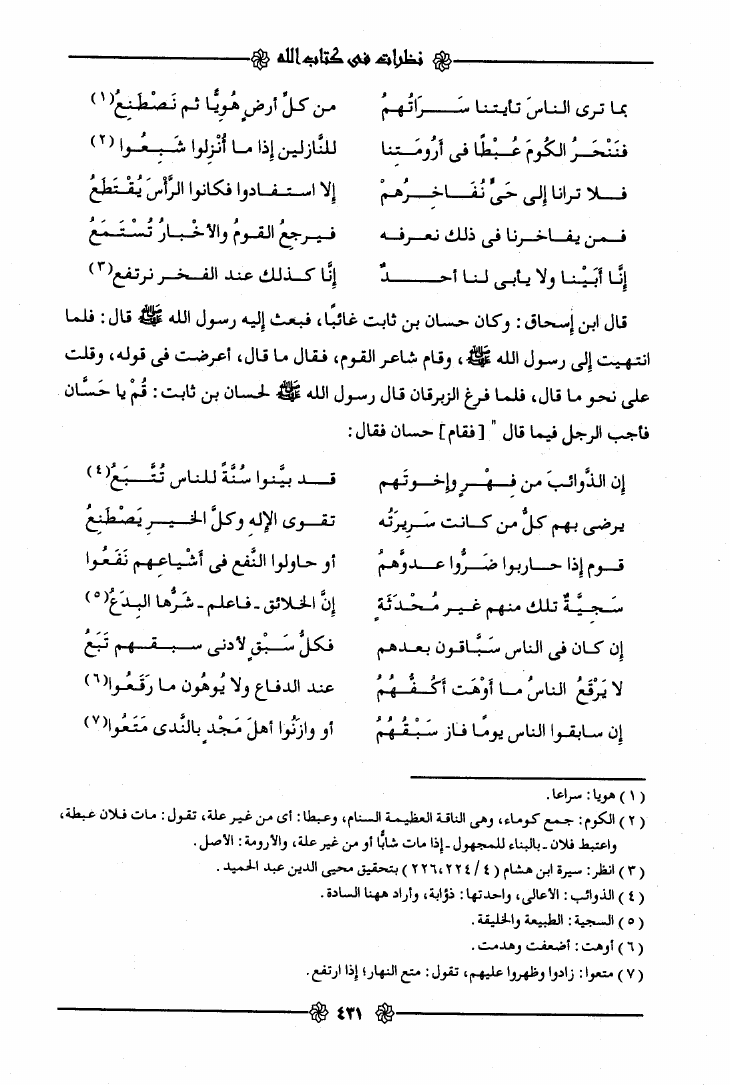 نظرات في كتاب الله
بما ترى الناسَ تأيتنا سَـــرَاتُهمُ من كلِّ أرضٍ هُويًّا ثم نَصْطَنِعُ(١)
فنَنْحَـــرُ الكُومَ عُـبْطًا في أَرُومَـتِنا للنَّازلين إذا مـا أُنْزِلوا شَـبِـعُـوا (٢)
فـــلا ترانا إلى حَيٍّ نُفَـاخِـــرُهـمْ إلا اسـتـفـادوا فكانوا الرَّأْسَ يُقْـتَطَعُ
فـمن يفـاخـرنا في ذلك نعـرفـه فـيـرجعُ القـومُ والأخْـبـارُ تُسْـتَـمَعُ
إنَّا أَبَيْـنـا ولا يأبـى لـنـا أحــــدٌ إنَّا كــذلك عند الفـخـر نرتفع(٣)
قال ابن إسحاق: وكان حسان بن ثابت غائبًا، فبعث إليه رسول الله ﷺ قال: فلما
انتهيت إلى رسول الله ﷺ، وقام شاعر القوم، فقال ما قال، أعرضت في قوله، وقلت
على نحو ما قال، فلما فرغ الزبرقان قال رسول الله ﷺ لحسان بن ثابت: قُمْ يا حَسَّان
فأجب الرجل فيما قال " [فقام] حسان فقال:
إن الذَّوائبَ من فِــهْــرٍ وإخـوتَهم قـــد بيَّنوا سُنَّةً للناس تُتَّـــبَعُ(٤)
يرضى بهم كلُّ من كـانت سَـرِيرَتُه تقـوى الإله وكلَّ الخـيـرِ يَصْطَنِعُ
قـوم إذا حـاربوا ضَـرُّوا عـدوَّهمُ أو حاولوا النَّفع في أشْيـاعِـهم نَفَعُوا
سَـجِيَّةٌ تلك منهم غيـر مُـحْدَثَةٍ إنَّ الخلائق -فاعلم- شَرُّها البِدَعُ(٥)
إن كـان في الناس سَـبَّاقون بعـدهم فكلُّ سَـبْقٍ لأدنى سـبـقـهم تَبَعُ
لا يَرْقَعُ الناسُ مـا أوْهَت أكُـفُّـهُـمُ عند الدفاع ولا يُوهُون ما رَقَعُوا(٦)
إن سـابقـوا الناس يومًـا فـاز سَـبْقُـهُمُ أو وازَنُوا أهلَ مَجْدٍ بالنَّدى مَتَعُوا(٧)
(١) هويا: سراعا.
(٢) الكوم: جمع كوماء، وهى الناقة العظيمة السنام، وعبطا: أى من غير علة، تقول: مات فلان عبطة،
واعتبط فلان -بالبناء للمجهول- إذا مات شابًّا أو من غير علة، والأرومة: الأصل.
(٣) انظر: سيرة ابن هشام (٤/ ٢٢٤، ٢٢٦) بتحقيق محيى الدين عبد الحميد.
(٤) الذوائب: الأعالى، واحدتها: ذؤابة، وأراد ههنا السادة.
(٥) السجية: الطبيعة والخليقة.
(٦) أوهت: أضعفت وهدمت.
(٧) متعوا: زادوا وظهروا عليهم، تقول: متع النهار؛ إذا ارتفع.
٤٣١